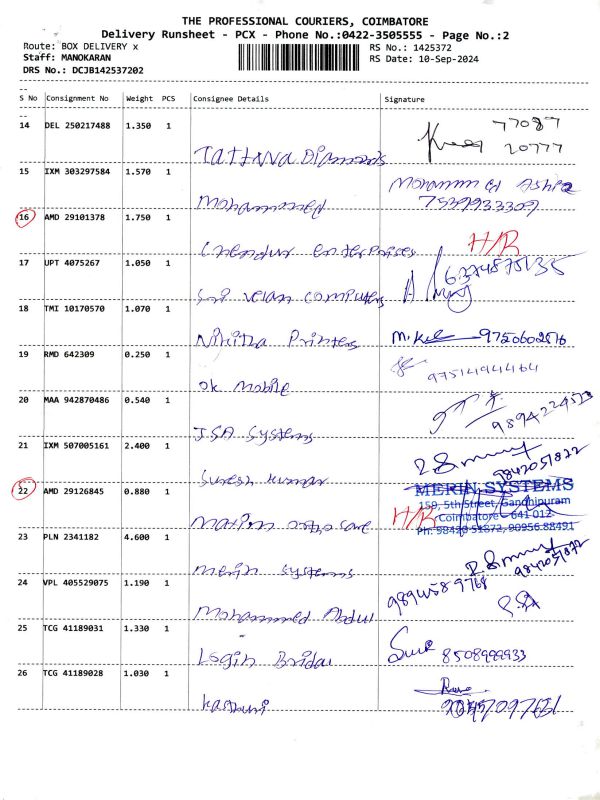 THE PROFESSIONAL COURIERS, COIMBATORE
Delivery Runsheet - PCX - Phone No.:0422-3505555 - Page No.:2
Route: BOX DELIVERY x RS No.: 1425372
Staff: MANOKARAN RS Date: 10-Sep-2024
DRS No.: DCJB142537202
S No Consignment No Weight PCS Consignee Details Signature
14 DEL 250217488 1.350 1
77087
20777
Tattva Diamonds
15 IXM 303297584 1.570 1
Mohammed
7539933309
16 AMD 29101378 1.750 1
Chendur enterprises H/R
17 UPT 4075267 1.050 1
6374875135
Sri velan computers
18 TMI 10170570 1.070 1
Nikitha Printers 9750602816
19 RMD 642309 0.250 1
9751494464
ok mobile
20 MAA 942870486 0.540 1
JSA Systems
21 IXM 507005161 2.400 1
9842051822
Suresh kumar
22 AMD 29126845 0.880 1
MERIN SYSTEMS
159, 5th Street, Gandhipuram
H/R Coimbatore - 641 012
Ph: 98420 51872, 90956 88491
23 PLN 2341182 4.600 1
merin systems
9842051872
24 VPL 405529075 1.190 1
9894589768
Mohammed Abdul
25 TCG 41189031 1.330 1
Login Bridal 8508999933
26 TCG 41189028 1.030 1